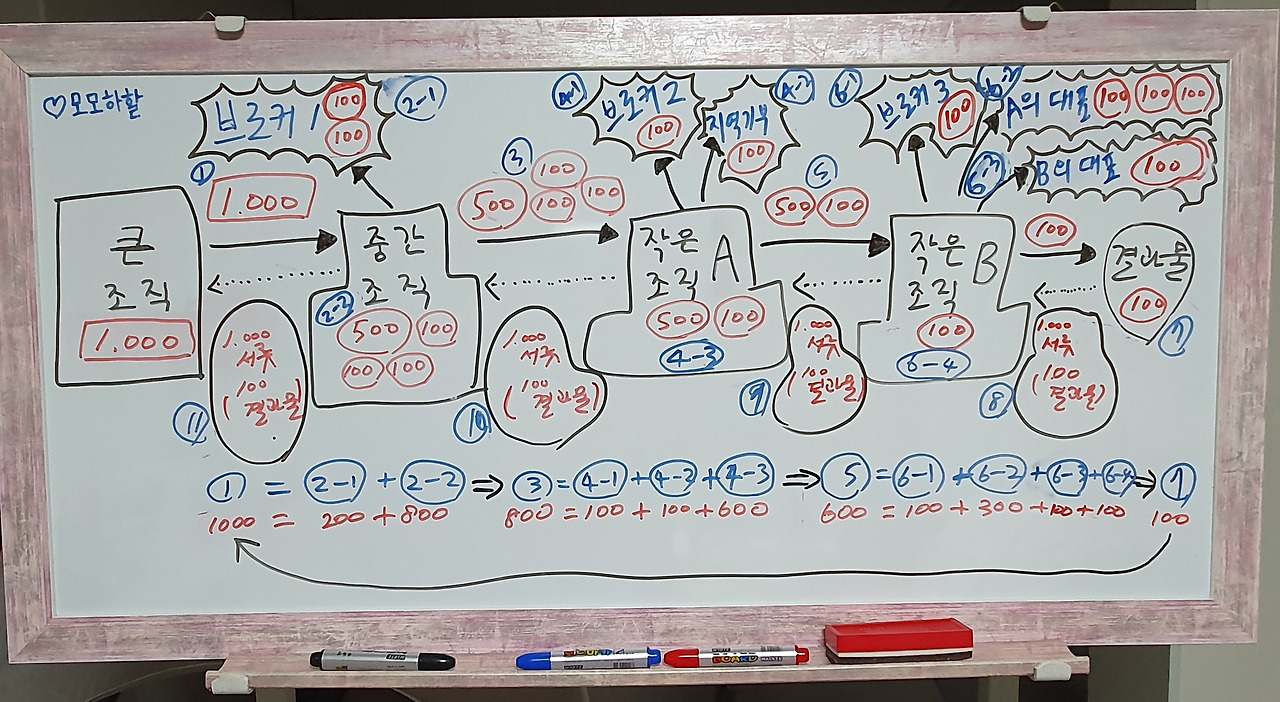 ♡모모하할
브로커 1
100
100
2-1
4-1
브로커 2
100
지역기부
100
4-2
6-1
브로커 3
100
6-2
A의 대표 100 100 100
6-3
B의 대표 100
①
1.000
③
100
500 100 100
⑤
500 100
100
큰
조직
1.000
중간
조직
2-2
500 100
100 100
작은
조직 A
500 100
4-3
작은
조직 B
100
6-4
결과물
100
⑦
1.000
서류
(100
결과물)
⑪
1.000
서류
(100
결과물)
⑩
1.000
서류
(100
결과물)
⑨
1.000
서류
(100
결과물)
⑧
① = 2-1 + 2-2 ⇒ ③ = 4-1 + 4-2 + 4-3 ⇒ ⑤ = 6-1 + 6-2 + 6-3 + 6-4 ⇒ ⑦
1000 = 200 + 800 800 = 100 + 100 + 600 600 = 100 + 300 + 100 + 100 100
BOARD